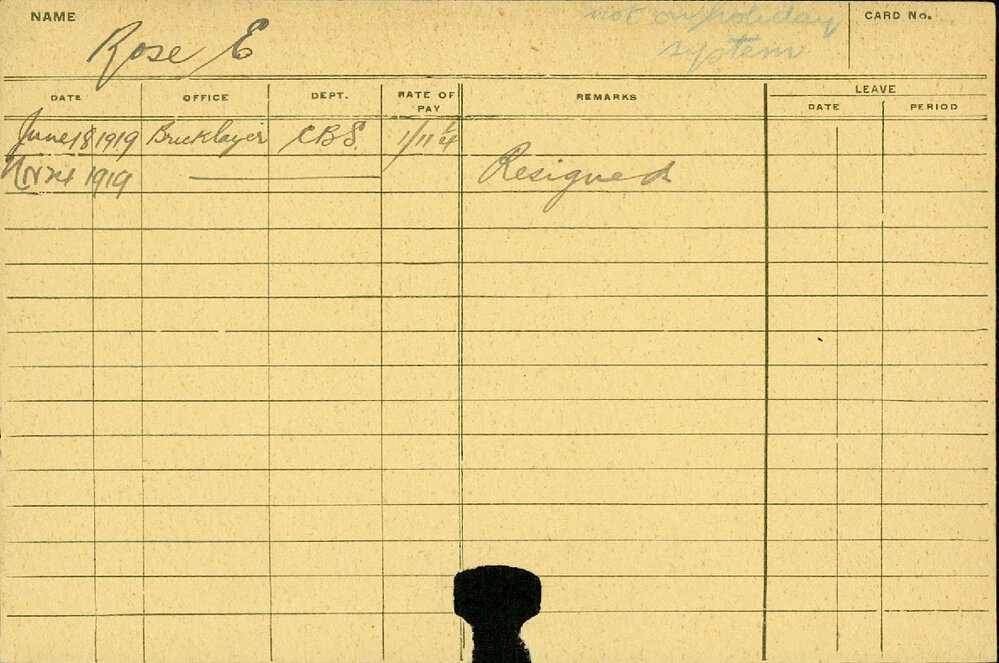 NAME Rose E not on holiday CARD No.
system
DATE OFFICE DEPT. RATE OF PAY REMARKS LEAVE
DATE PERIOD
June 18 1919 Bricklayer CBS. 1/11¼
Nov 24 1919 Resigned